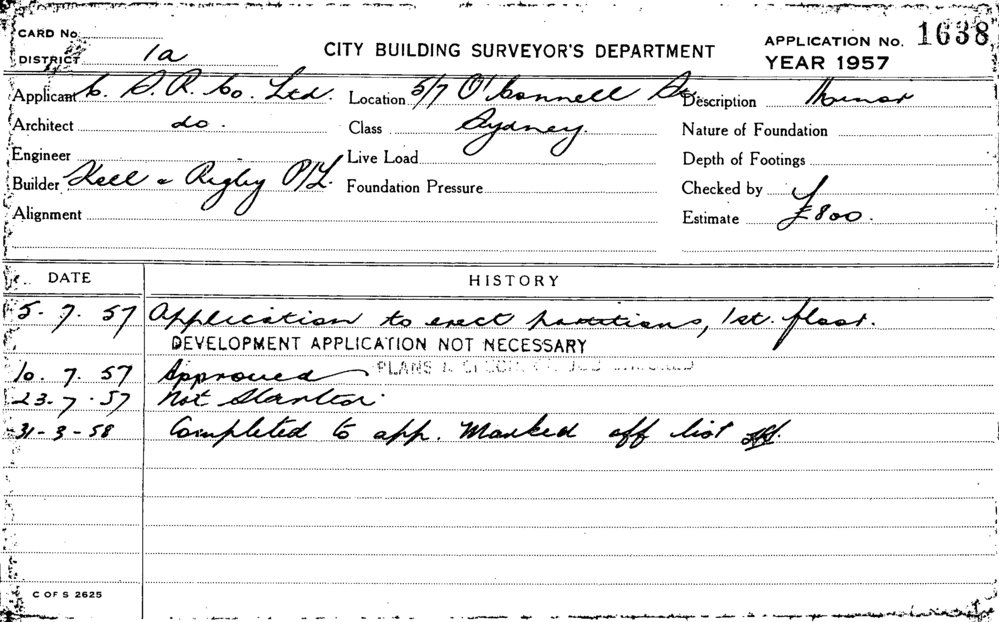 CARD No.
DISTRICT 1a
CITY BUILDING SURVEYOR'S DEPARTMENT
APPLICATION No. 1638
YEAR 1957
Applicant C. S. R. Co. Ltd. Location 5/7 O'Connell St. Description Minor
Architect do. Class Sydney. Nature of Foundation
Engineer Live Load Depth of Footings
Builder Kell & Rigby P/L. Foundation Pressure Checked by
Alignment Estimate £800.
DATE HISTORY
5. 7. 57 Application to erect partitions, 1st. floor.
DEVELOPMENT APPLICATION NOT NECESSARY
10. 7. 57 Approved PLANS &
23. 7. 57 Not Started.
31-3-58 Completed to app. Marked off list
C OF S 2625